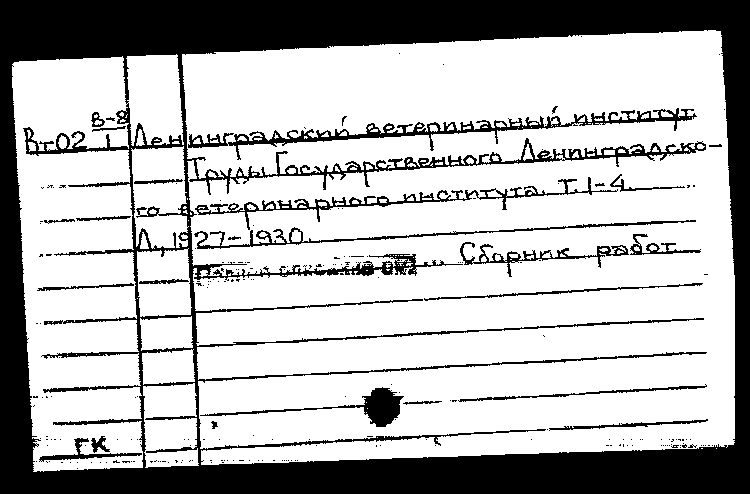 Вт02 В-8/1 Ленинградский ветеринарный институт
Труды Государственного Ленинградско-
го ветеринарного института. Т. 1-4.
Л., 1927-1930.
Полное описание см. ... Сборник работ
ГК